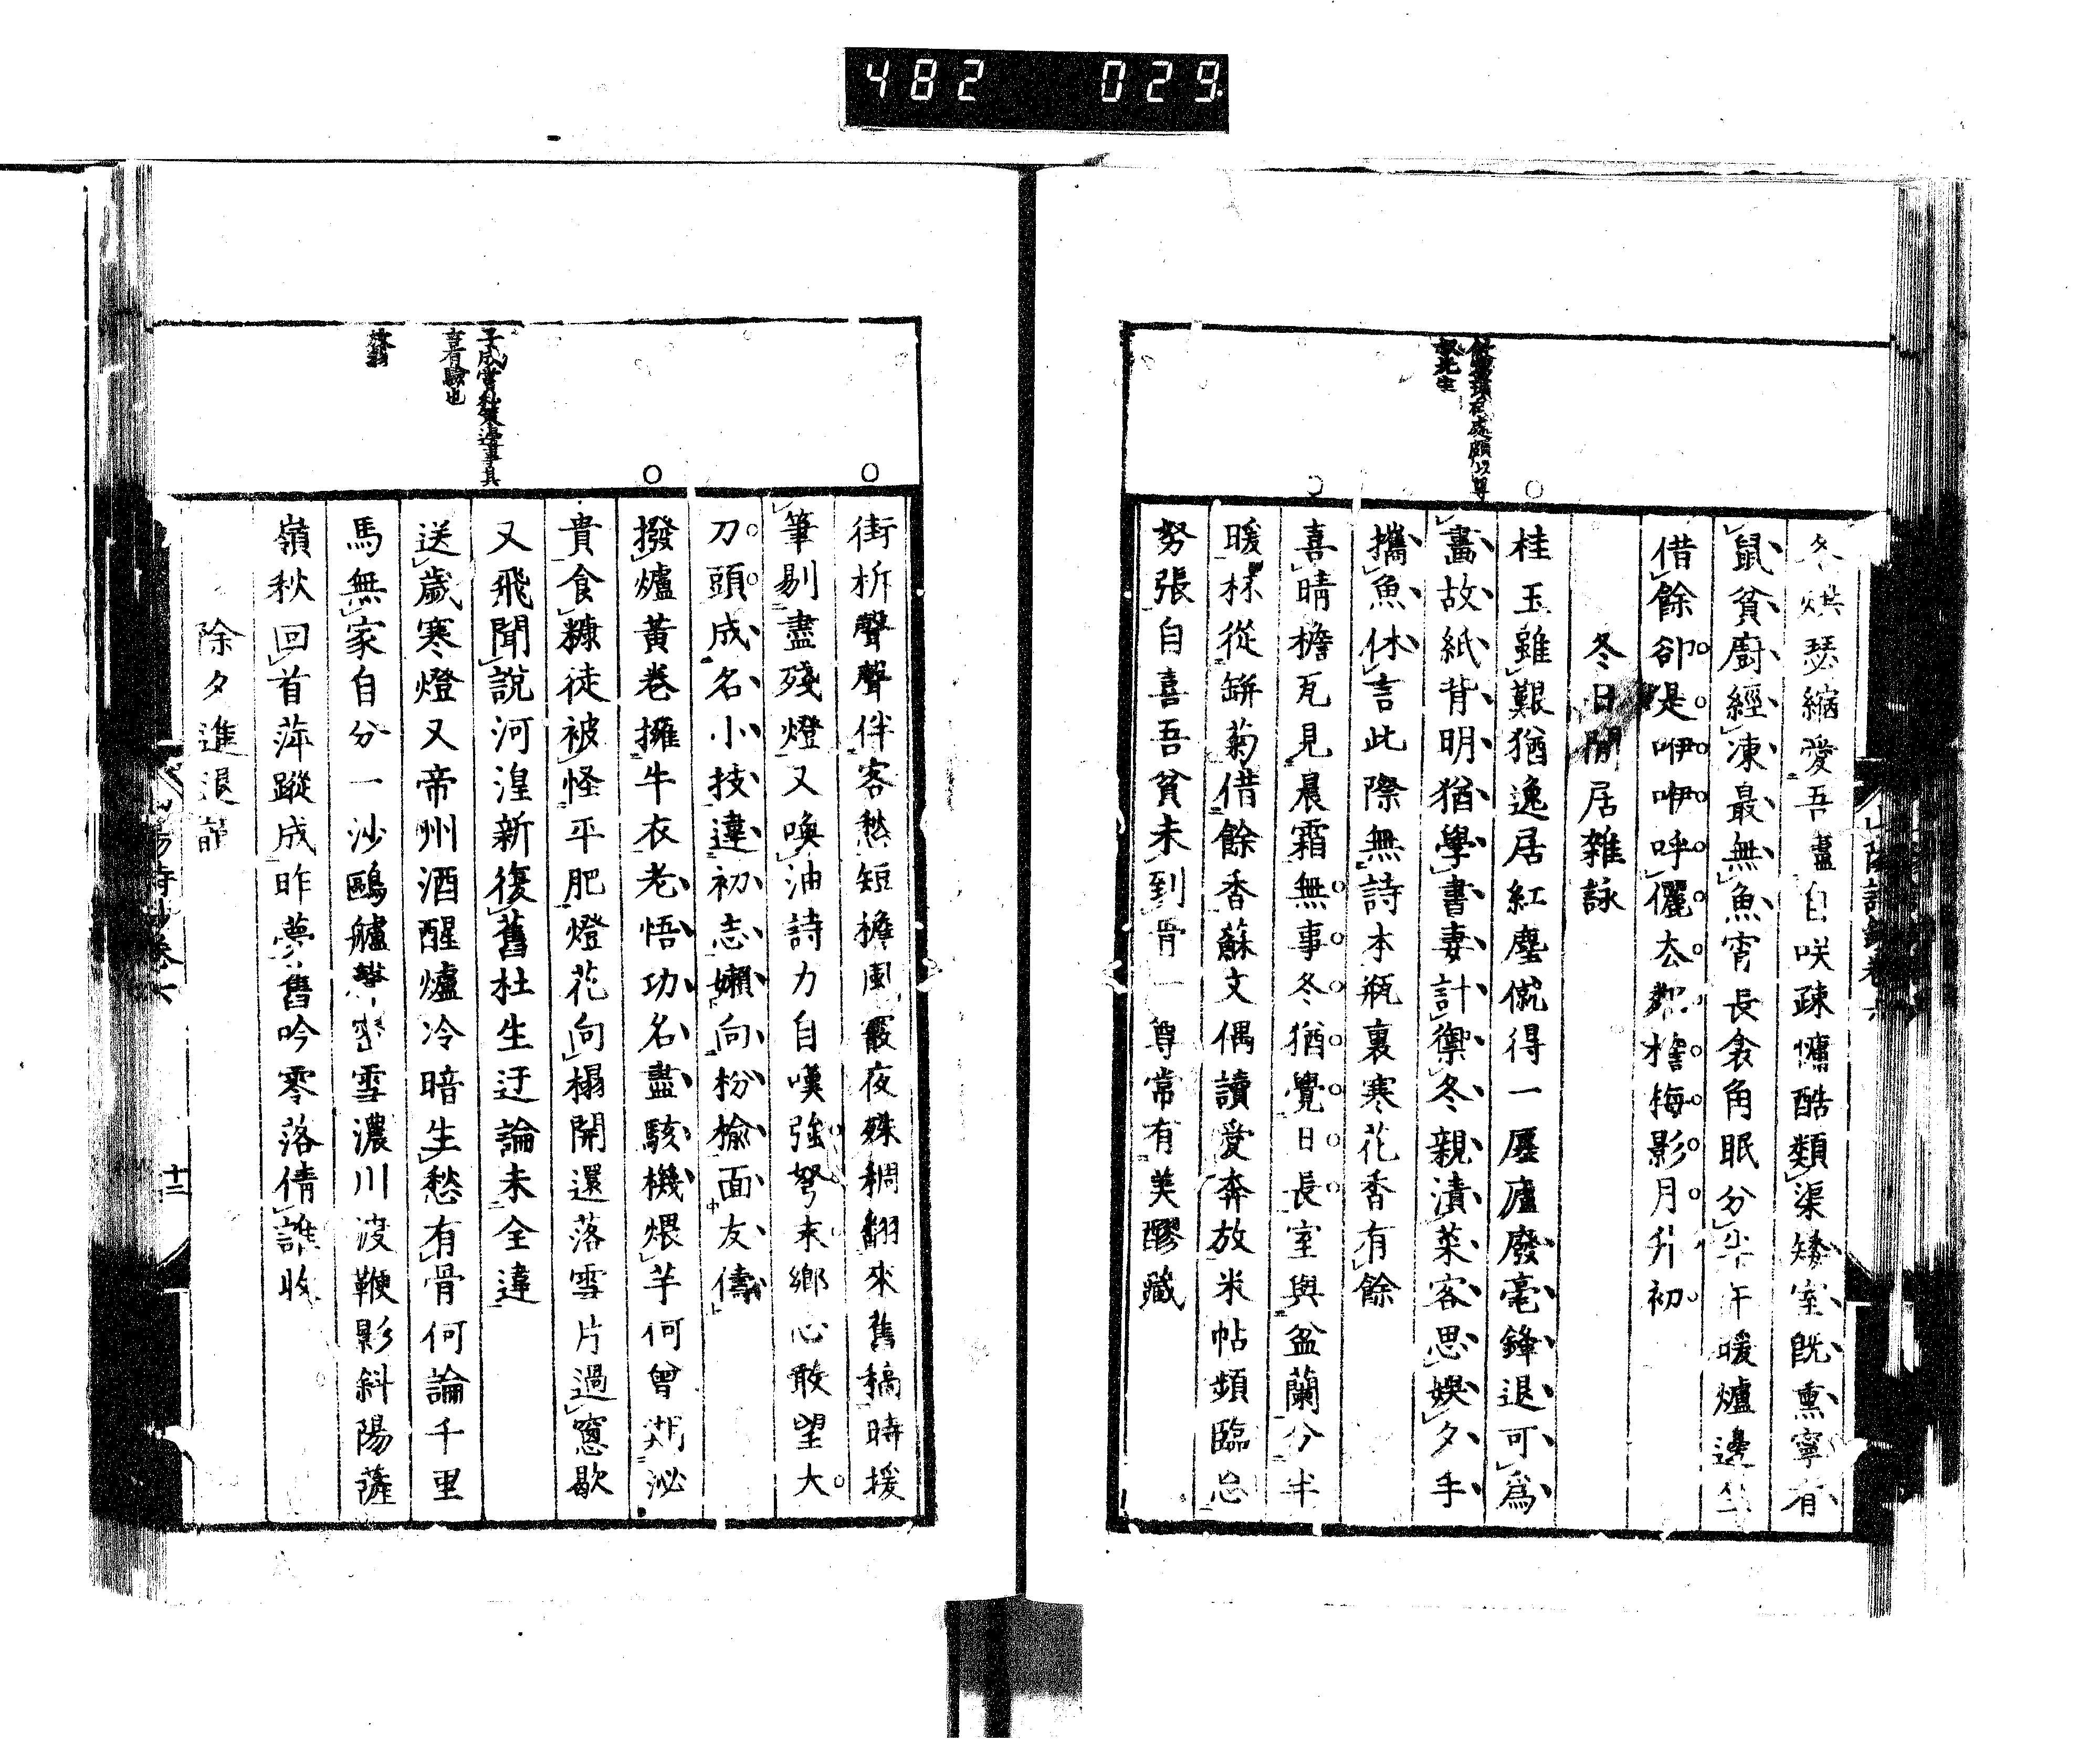 482 029
冬烘瑟縮愛吾盧自咲疎慵酷類渠矮室旣熏寧有
鼠貧廚經凍最無魚宵長衾角眠分半午暖爐邊坐
借餘卻是咿咿呼儷去
檐梅影月升初
冬日閒居雜詠
桂玉雖艱猶逸居紅塵僦得一廛廬廢毫鋒退可爲
畵故紙背明猶學書妻計禦冬親漬菜客思娛夕手
攜魚休言此際無詩本瓶裏寒花香有餘
喜晴檐瓦見晨霜無事冬猶覺日長室與盆蘭分半
暖牀從缾菊借餘香蘇文偶讀愛奔放米帖頻臨忌
努張自喜吾貧未到骨一尊常有美醪藏
街柝聲聲伴客愁短檐風霰夜殊稠翻來舊稿時援
筆剔盡殘燈又喚油詩力自嘆強弩末鄉心敢望大
刀頭成名小技違初志嬾向枌楡面友儔
撥爐黃卷擁牛衣老悟功名盡駭機煨芋何曾期泌
貴食糠徒被怪平肥燈花向榻開還落雪片過窻歇
又飛聞說河湟新復舊杜生迂論未全違
送歲寒燈又帝州酒醒爐冷暗生愁有骨何論千里
馬無家自分一沙鷗艫聲密雪濃川渡鞭影斜陽薩
嶺秋回首萍蹤成昨夢舊吟零落倩誰收
除夕進退韻
十二